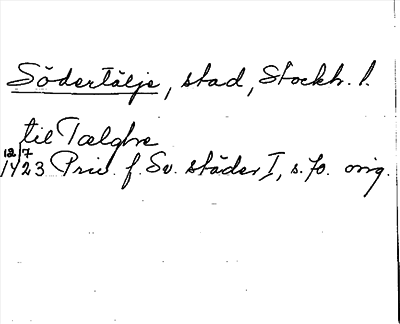 Södertälje, stad, Stockh. l.
til Tælghre
12/7
1423 Priv. f. Sv. städer I, s. 70. orig.